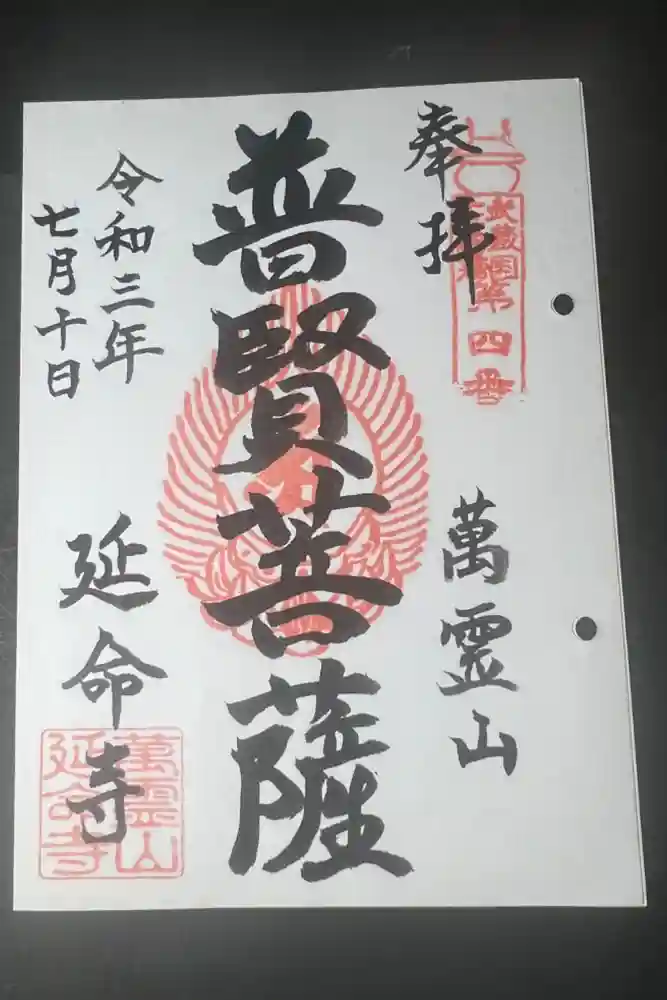 奉拝
武蔵国
第四番
萬霊山
普賢菩薩
令和三年
七月十日
延命寺
萬霊山
延命寺